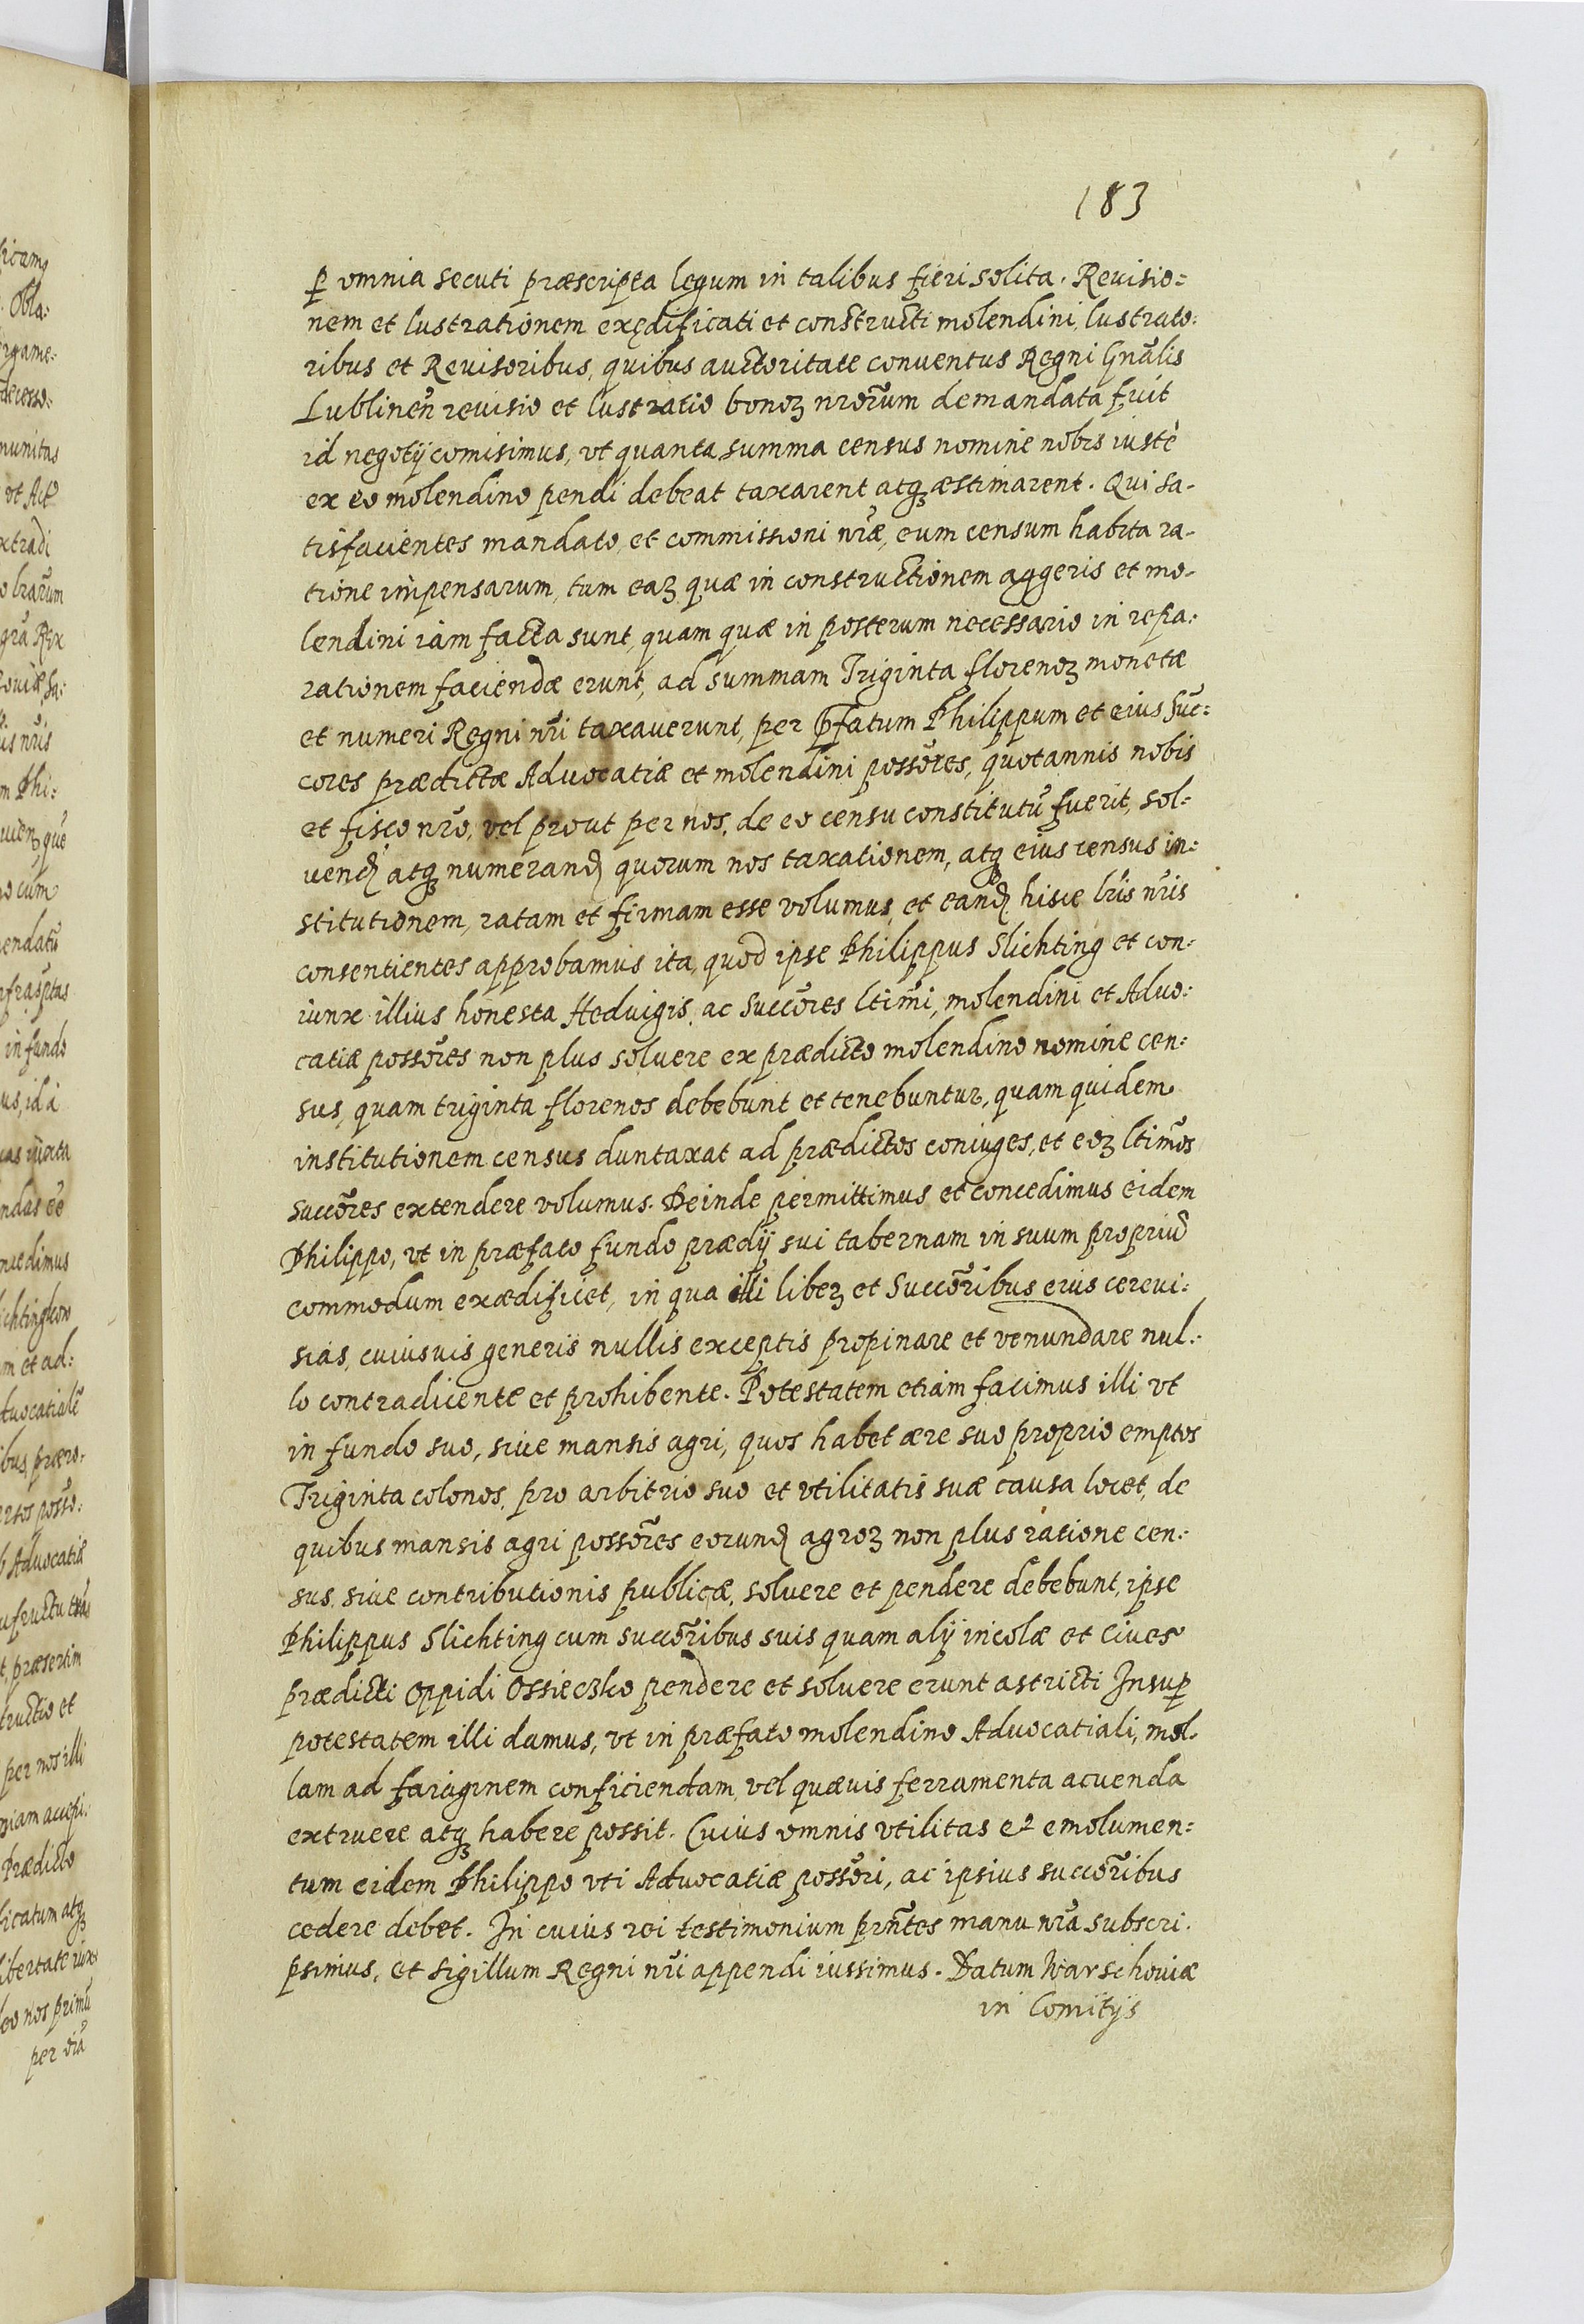 183
ꝑ omnia secuti præscripta legum in talibus fieri solita. Reuisio=
nem et lustrationem exędificati et constructi molendini, lustrato:
ribus et Reuisoribus, quibus auctoritate conuentus Regni Gnãlis
Lublineñ reuisio et lustratio bonoꝝ nrõrum demandata fuit
id negotÿ comisimus, vt quanta summa census nomine nobis iustè
ex eo molendino pendi debeat taxarent atqꝫ æstimarent. Qui sa-
tisfacientes mandato, et commissioni nr̃æ, eum censum habita ra-
tione impensarum, tum eaꝝ quæ in constructionem aggeris et mo-
lendini iam facta sunt, quam quæ in posterum necessario in repa:
rationem faciendæ erunt, ad summam Triginta florenoꝝ monetæ
et numeri Regni nr̃i taxauerunt, per p̃fatum Philippum et eius Suc̃:
cores prædictæ Aduocatiæ et molendini possõres, quotannis nobis
et fisco nrõ, vel prout per nos, de eo censu constitutũ fuerit, sol:
uenđ atqꝫ numeranđ quorum nos taxationem, atqꝫ eius census in:
stitutionem, ratam et firmam esse volumus, et eanđ hisce lr̃is nr̃is
consentientes approbamus ita, quod ipse Philippus Slichting et con:
iunx illius honesta Heduigis, ac Succõres ltimĩ, molendini et Aduo:
catiæ possõres non plus soluere ex prædicto molendino nomine cen:
sus, quam triginta florenos debebunt et tenebuntur, quam quidem
institutionem census duntaxat ad prædictos coniuges, et eoꝝ ltimõs
succõres extendere volumus. Deinde permittimus et concedimus eidem
Philippo, vt in præfato fundo prædÿ sui tabernam in suum propriũ
commodum exædificet, in qua illi libeꝝ et Succõribus eius cereui:
sias, cuiusuis generis nullis exceptis propinare et venundare nul:
lo contradicente et prohibente. Potestatem etiam facimus illi vt
in fundo suo, siue mansis agri, quos habet ære suo proprio emptos
Triginta colonos, pro arbitrio suo et vtilitatis suæ causa locet, de
quibus mansis agri possõres eorunđ agroꝝ non plus ratione cen:
sus, siue contributionis publicæ, soluere et pendere debebunt, ipse
Philippus Slichting cum succõribus suis quam alÿ incolæ et Ciues
prædicti oppidi Ossieczko pendere et soluere erunt astricti Insuꝑ
potestatem illi damus, vt in præfato molendino Aduocatiali, mol:
lam ad farraginem conficiendam, vel quæuis ferramenta acuenda
extruere atqꝫ habere possit. Cuius omnis vtilitas et emolumen:
tum eidem Philippo vti Aduocatiæ possõri, ac ipsius succõribus
cedere debet. In cuius rei testimonium prñtes manu nr̃a subscri:
psimus, et sigillum Regni nr̃i appendi iussimus. Datum Warschouiæ
in Comitÿs